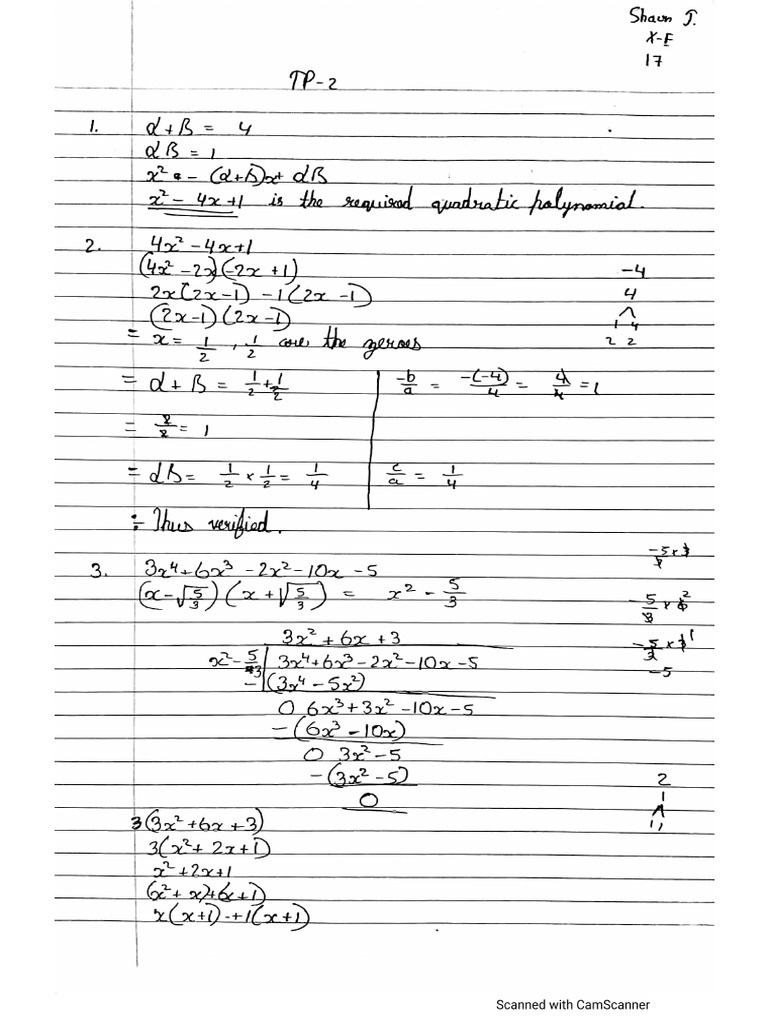 Shawn J.
X-E
17
TP-2
1. α+β = 4
αβ = 1
x² - (α+β)x + αβ
x² - 4x+1 is the required quadratic polynomial.
2. 4x² -4x+1
(4x² -2x)(-2x +1)
2x(2x-1) -1(2x -1)
(2x-1)(2x-1)
= x = 1/2, 1/2 are the zeroes
-4
4
1 4
2 2
= α+β = 1/2 + 1/2 | -b/a = -(-4)/4 = 4/4 = 1
= 2/2 = 1
= αβ = 1/2 × 1/2 = 1/4 | c/a = 1/4
÷ Thus verified.
3. 3x⁴+6x³ -2x²-10x -5
(x-√5/3)(x+√5/3) = x² - 5/3
3x² + 6x + 3
x²-5/3 | 3x⁴+6x³-2x²-10x-5
-(3x⁴ -5x²)
0 6x³+3x² -10x-5
-(6x³ -10x)
0 3x²-5
-(3x²-5)
0
-5/3 × 6 2
-5/3 × 3 1
-5
2
1
1,1
3(3x²+6x+3)
3(x²+2x+1)
x²+2x+1
(x²+x)+(x+1)
x(x+1)+1(x+1)
Scanned with CamScanner